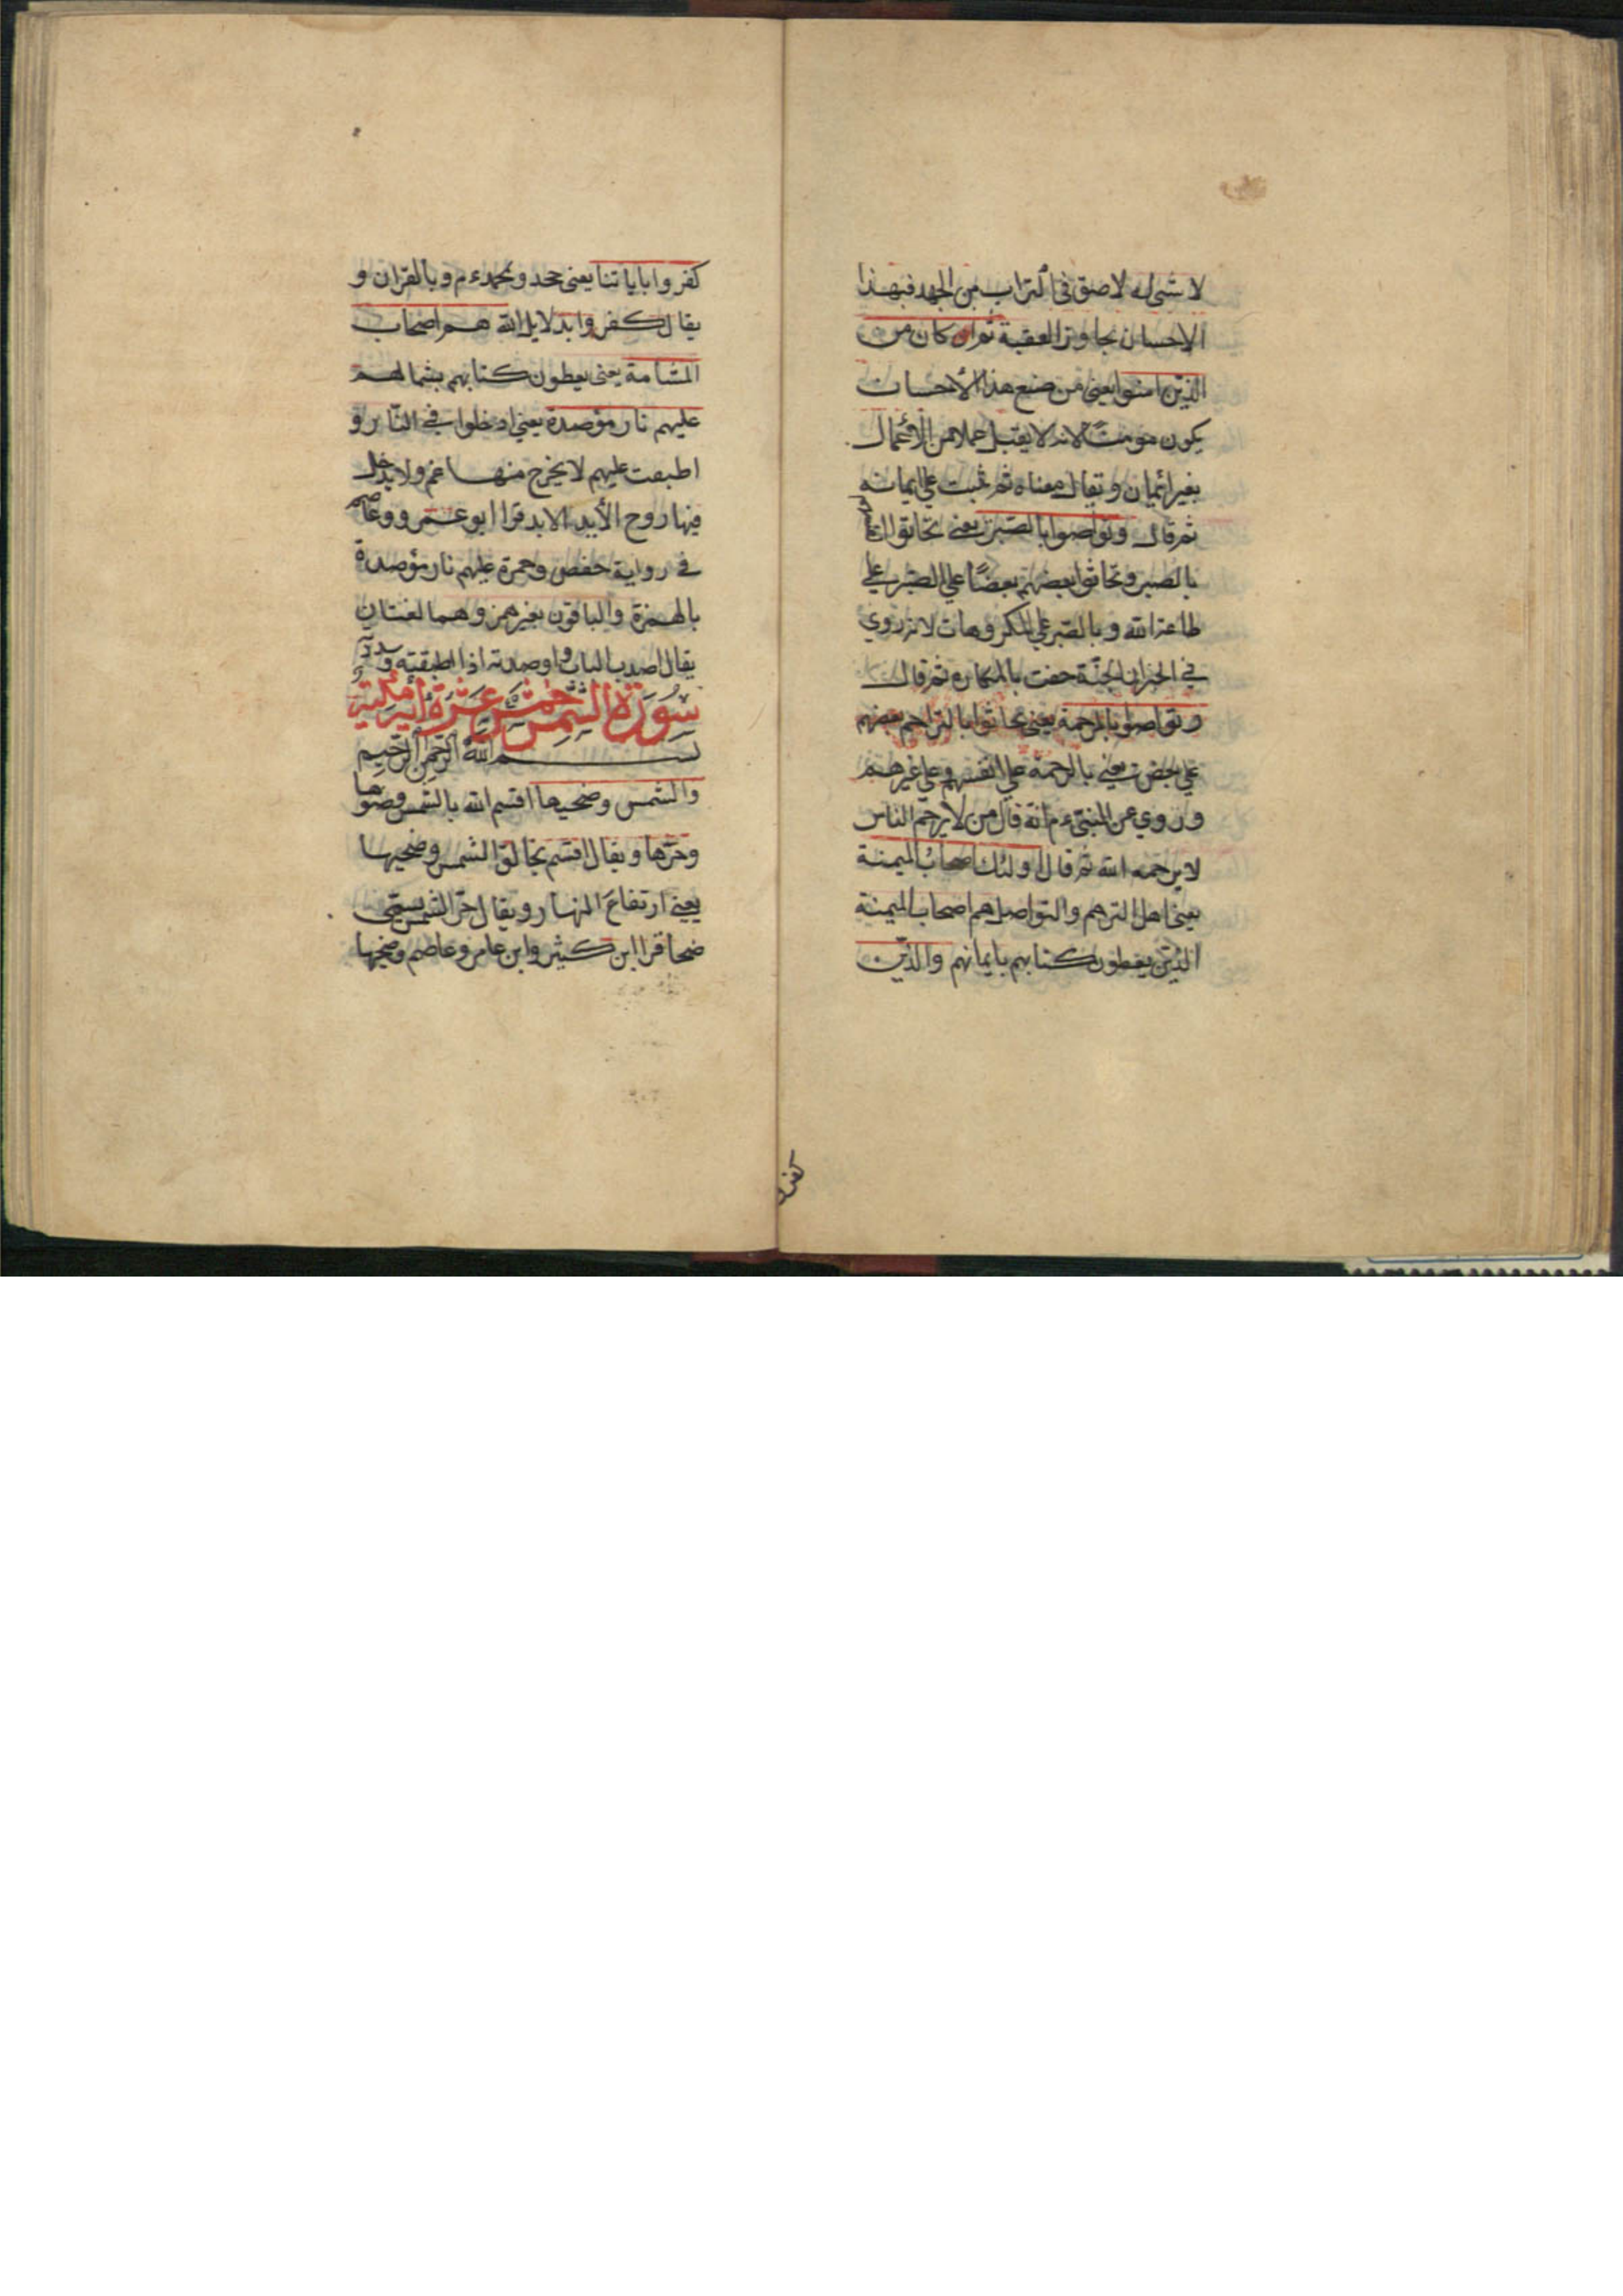 لا شئ له لاصق في التراب من الجهد فبهذا
الاحسان يجاوز العقبة ثم كان من
الذين امنوا يعني من صنع هذا الأحسان
يكون مومنًا لانه لا يقبل عملا من الأعمال
بغير ايمان ويقال معناه ثم ثبت علي ايمانه
ثم قال وتواصوا بالصبر يعني تحاثوا
بالصبر وتحاثوا بعضهم بعضًا علي الصبر علي
طاعة الله وبالصبر علي المكروهات لانه روي
في الخبر ان الجنّة حفت بالمكاره ثم قال
وتواصوا بالمرحمة يعني تحاثوا بالتراحم بعضهم
علي بعض يعني بالرحمة علي انفسهم وعلي غيرهم
وروي عن النبي ءم انّه قال من لا يرحم الناس
لا يرحمه الله ثم قال اولئك اصحاب الميمنة
يعني اهل التراحم والتواصل هم اصحاب الميمنة
الذين يعطون كتابهم بايمانهم والذين
كفروا
كفروا باياتنا يعني جحدو بمحمد ءم وبالقران و
يقال كفروا بدلايل الله هم اصحاب
المشامة يعني يعطون كتابهم بشمالهم
عليهم نار مؤصدة يعني ادخلوا في النّار و
اطبقت عليهم لا يخرج منها غم ولا يدخل
فيها روح الأبيد الابد قرا ابو عمرو وعاصم
في رواية حفص وحمزة عليهم نار مؤصدة
بالهمزة والباقون بغير همز وهما لغتان
يقال اصدت الباب واوصدته اذا اطبقته
سورة الشمس خمس عشرة أية مكية
بسم الله الرحمن الرحيم
والشمس وضحيها اقسم الله بالشمس وضوها
وحرّها ويقال اقسم بخالق الشمس وضحيها
يعني ارتفاع النهار ويقال حرّ الشمس يسمّى
ضحا قرا ابن كثير وابن عامر وعاصم وضحيها